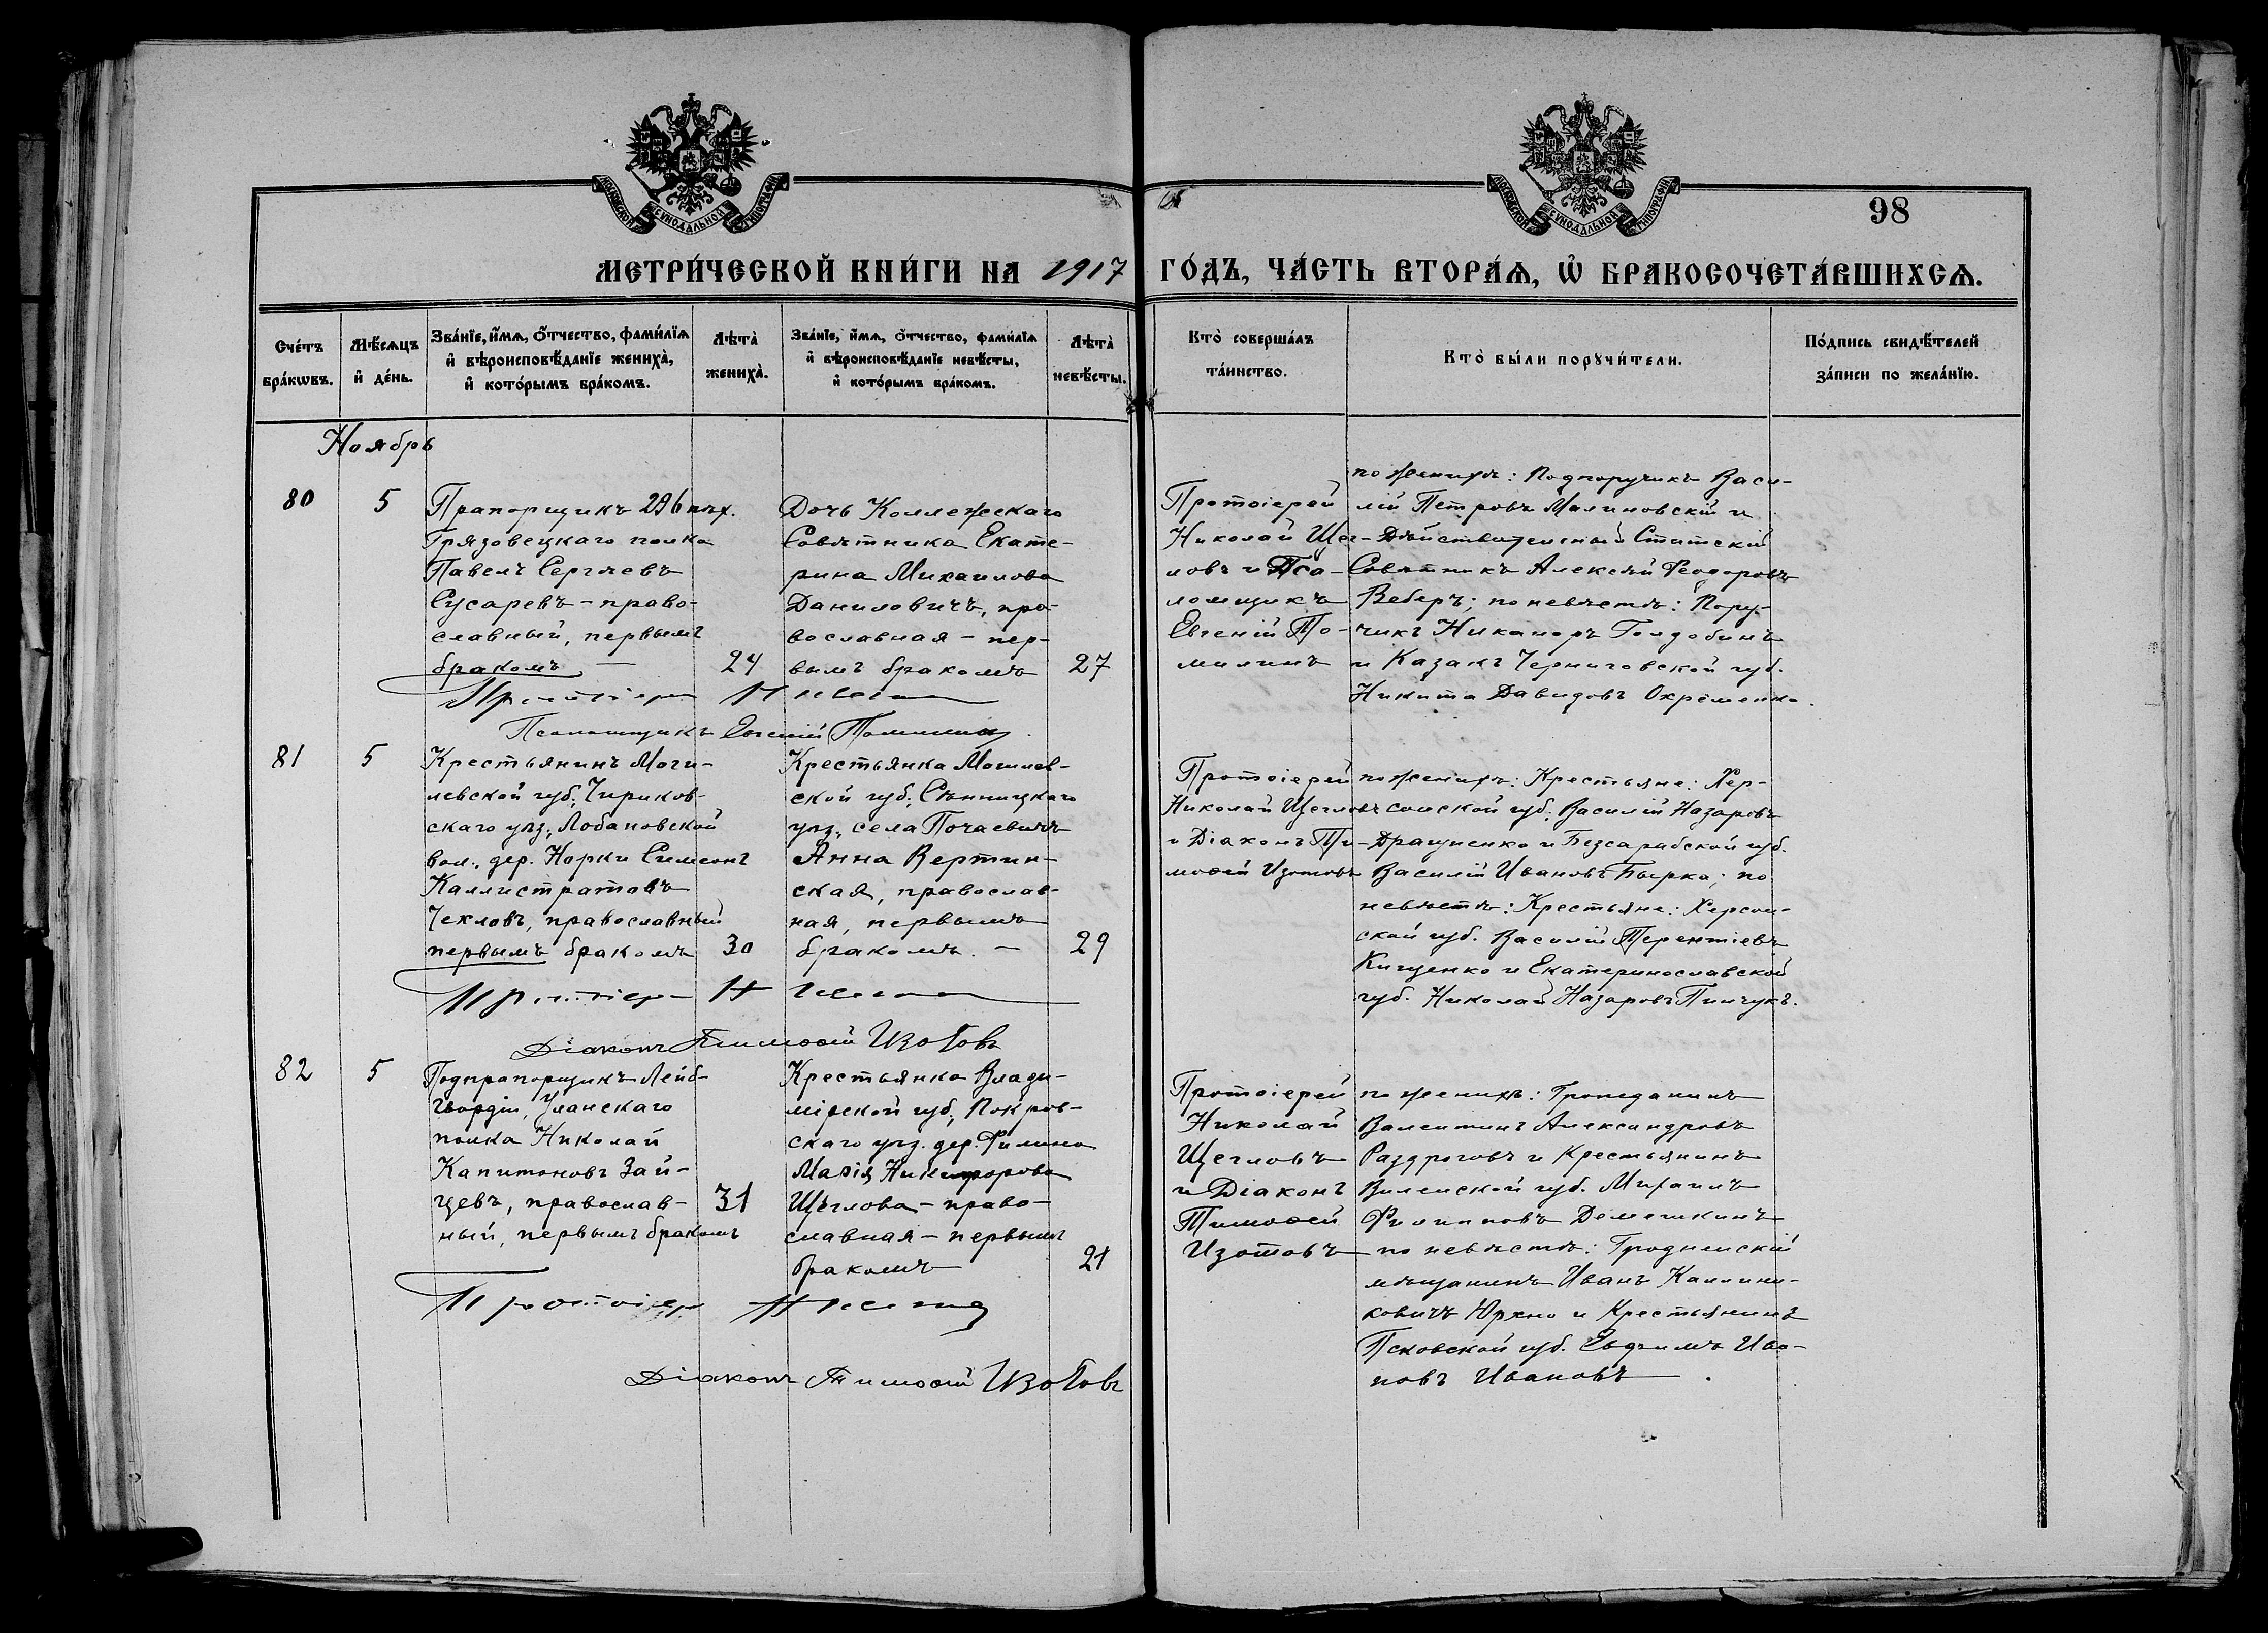 МОСКОВСКОЙ СѴНОДАЛЬНОЙ ТИПОГРАФІИ
МОСКОВСКОЙ СѴНОДАЛЬНОЙ ТИПОГРАФІИ
98
МЕТРИ́ЧЕСКОЙ КНИ́ГИ НА 1917 ГО́ДЪ, ЧА́СТЬ ВТОРА́Ѧ, Ѡ҆ БРАКОСОЧЕТА́ВШИХСѦ.
Сче́тъ бра́кѡвъ.
Мѣ́сѧцъ и҆ де́нь.
Зва́нїе, и҆́мѧ, о҆́тчество, фами́лїѧ и҆ вѣроисповѣ́данїе жениха̀, и҆ кото́рымъ бра́комъ.
Лѣта̀ жениха̀.
Зва́нїе, и҆́мѧ, о҆́тчество, фами́лїѧ и҆ вѣроисповѣ́данїе невѣ́сты, и҆ кото́рымъ бра́комъ.
Лѣта̀ невѣ́сты.
Кто̀ соверша́лъ та́инство.
Кто̀ бы́ли порꙋчи́тели.
По́дпись свидѣ́телей за́писи по жела́нїю.
Ноябрь
80
5
Прапорщикъ 296 пѣх.
Грязовецкаго полка
Павелъ Сергѣевъ
Сусаревъ – право-
славный, первымъ
бракомъ —
24
Дочь Коллежскаго
Совѣтника Екате-
рина Михаилова
Даниловичъ, пра-
вославная – пер-
вымъ бракомъ
27
Протоіерей
Николай Щег-
ловъ и Пса-
ломщикъ
Евгеній То-
милинъ
по женихѣ: Подпоручикъ Васи-
лій Петровъ Малиновскій и
Дѣйствительный Статскій
Совѣтникъ Алексѣй Феодоровъ
Веберъ; по невѣстѣ: Пору-
чикъ Никаноръ Голдобинъ
и Казакъ Черниговской губ.
Никита Давидовъ Охрѣменко.
Протоіер Н
Псаломщикъ Евгеній Томилинъ
81
5
Крестьянинъ Моги-
левской губ., Чириков-
скаго уѣз., Лобановской
вол., дер. Норки Симеонъ
Каллистратовъ
Чекловъ, православный
первымъ бракомъ
30
Крестьянка Могилев-
ской губ., Сѣнницкаго
уѣз., села Почаевичъ
Анна Вертин-
ская, православ-
ная, первымъ
бракомъ. —
29
Протоіерей
Николай Щегловъ
и Діаконъ Ти-
моѳей Изотовъ
по женихѣ: Крестьяне: Хер-
сонской губ. Василій Назаровъ
Драгуненко и Безсарабской губ.
Василій Ивановъ Бырка; по
невѣстѣ: Крестьяне: Херсон-
ской губ. Василій Терентіевъ
Кищенко и Екатеринославской
губ. Николай Назаровъ Пинчукъ.
Протоіер Н
Діаконъ Тимоѳей Изотовъ
82
5
Подпрапорщикъ Лейб-
Гвардіи, Уланскаго
полка Николай
Капитоновъ Зай-
цевъ, православ-
ный, первымъ бракомъ
31
Крестьянка Влади-
мірской губ., Покров-
скаго уѣз. дер. Филино
Марія Никифорова
Щеглова – право-
славная – первымъ
бракомъ
21
Протоіерей
Николай
Щегловъ
и Діаконъ
Тимоѳей
Изотовъ
по женихѣ: Гражданинъ
Валентинъ Александровъ
Раздроговъ и Крестьянинъ
Виленской губ. Михаилъ
Филипповъ Демешкинъ
по невѣстѣ: Гродненскій
мѣщанинъ Иванъ Каллини-
ковичъ Юрхно и Крестьянинъ
Псковской губ. Евдѣимъ Ива-
новъ Ивановъ.
Протоіер Н
Діаконъ Тимоѳей Изотовъ